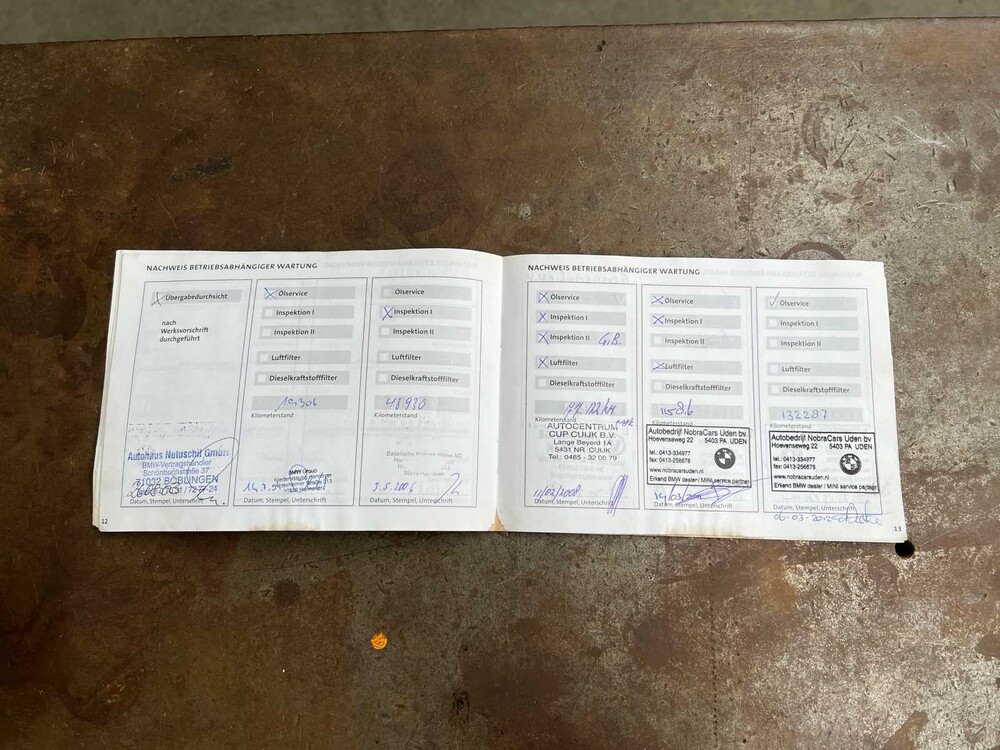 NACHWEIS BETRIEBSABHÄNGIGER WARTUNG
Übergabedurchsicht
nach
Werksvorschrift
durchgeführt
Autohaus Netuschil GmbH
BMW-Vertragshändler
Schönbuchstraße 37
71032 BÖBLINGEN
Datum, Stempel, Unterschrift
12
Ölservice
Inspektion I
Inspektion II
Luftfilter
Dieselkraftstofffilter
Kilometerstand
BMW Group
Datum, Stempel, Unterschrift
Ölservice
Inspektion I
Inspektion II
Luftfilter
Dieselkraftstofffilter
48930
Kilometerstand
3.5.2006
Datum, Stempel, Unterschrift
NACHWEIS BETRIEBSABHÄNGIGER WARTUNG
Ölservice
Inspektion I
Inspektion II G.B.
Luftfilter
Dieselkraftstofffilter
Kilometerstand
AUTOCENTRUM
CUP CUIJK B.V.
Lange Beyerd 1A
5431 NR CUIJK
Tel.: 0485 - 32 06 79
11/02/2008
Datum, Stempel, Unterschrift
Ölservice
Inspektion I
Inspektion II
Luftfilter
Dieselkraftstofffilter
Kilometerstand
Autobedrijf NobraCars Uden bv
Hoevenseweg 22 5403 PA UDEN
tel.: 0413-334977
fax: 0413-256678
www.nobracarsuden.nl
Erkend BMW dealer / MINI service partner
Datum, Stempel, Unterschrift
Ölservice
Inspektion I
Inspektion II
Luftfilter
Dieselkraftstofffilter
132287
Kilometerstand
Autobedrijf NobraCars Uden bv
Hoevenseweg 22 5403 PA UDEN
tel.: 0413-334977
fax: 0413-256678
www.nobracarsuden.nl
Erkend BMW dealer / MINI service partner
Datum, Stempel, Unterschrift
13